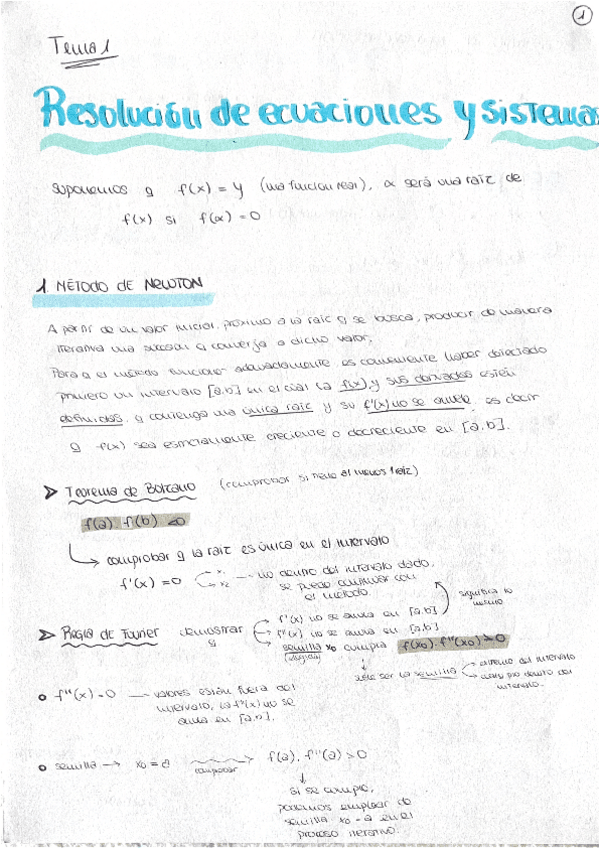 1
Tema 1
Resolución de ecuaciones y sistemas
suponemos q f(x) = y (una funcion real), α será una raíz de
f(x) si f(α) = 0
1. MÉTODO DE NEWTON
A partir de un valor inicial, próximo a la raíz q se busca, producir de manera
iterativa una sucesión q converja a dicho valor.
Para q el método funcione adecuadamente es conveniente haber detectado
primero un intervalo [a,b] en el cual la f(x) y sus derivadas estén
definidas, q contenga una única raíz y su f'(x) no se anule, es decir
q f(x) sea estrictamente creciente o decreciente en [a,b].
➤ Teorema de Bolzano (comprobar si tiene al menos 1 raíz)
f(a) · f(b) < 0
comprobar q la raíz es única en el intervalo
f'(x) = 0 x₁ x₂ no dentro del intervalo dado,
se puede continuar con
el método.
significa lo
mismo
➤ Regla de Fourier demostrar q
f'(x) no se anula en [a,b]
f''(x) no se anula en [a,b]
semilla x₀ cumpla f(x₀) · f''(x₀) > 0
ser la semilla
extremo del intervalo
dentro del
intervalo.
f''(x) = 0 — valores están fuera del
intervalo, la f''(x) no se
anula en [a,b].
semilla → x₀ = a comprobar f(a) · f''(a) > 0
si se cumple,
podemos emplear de
semilla x₀ = a en el
proceso iterativo.